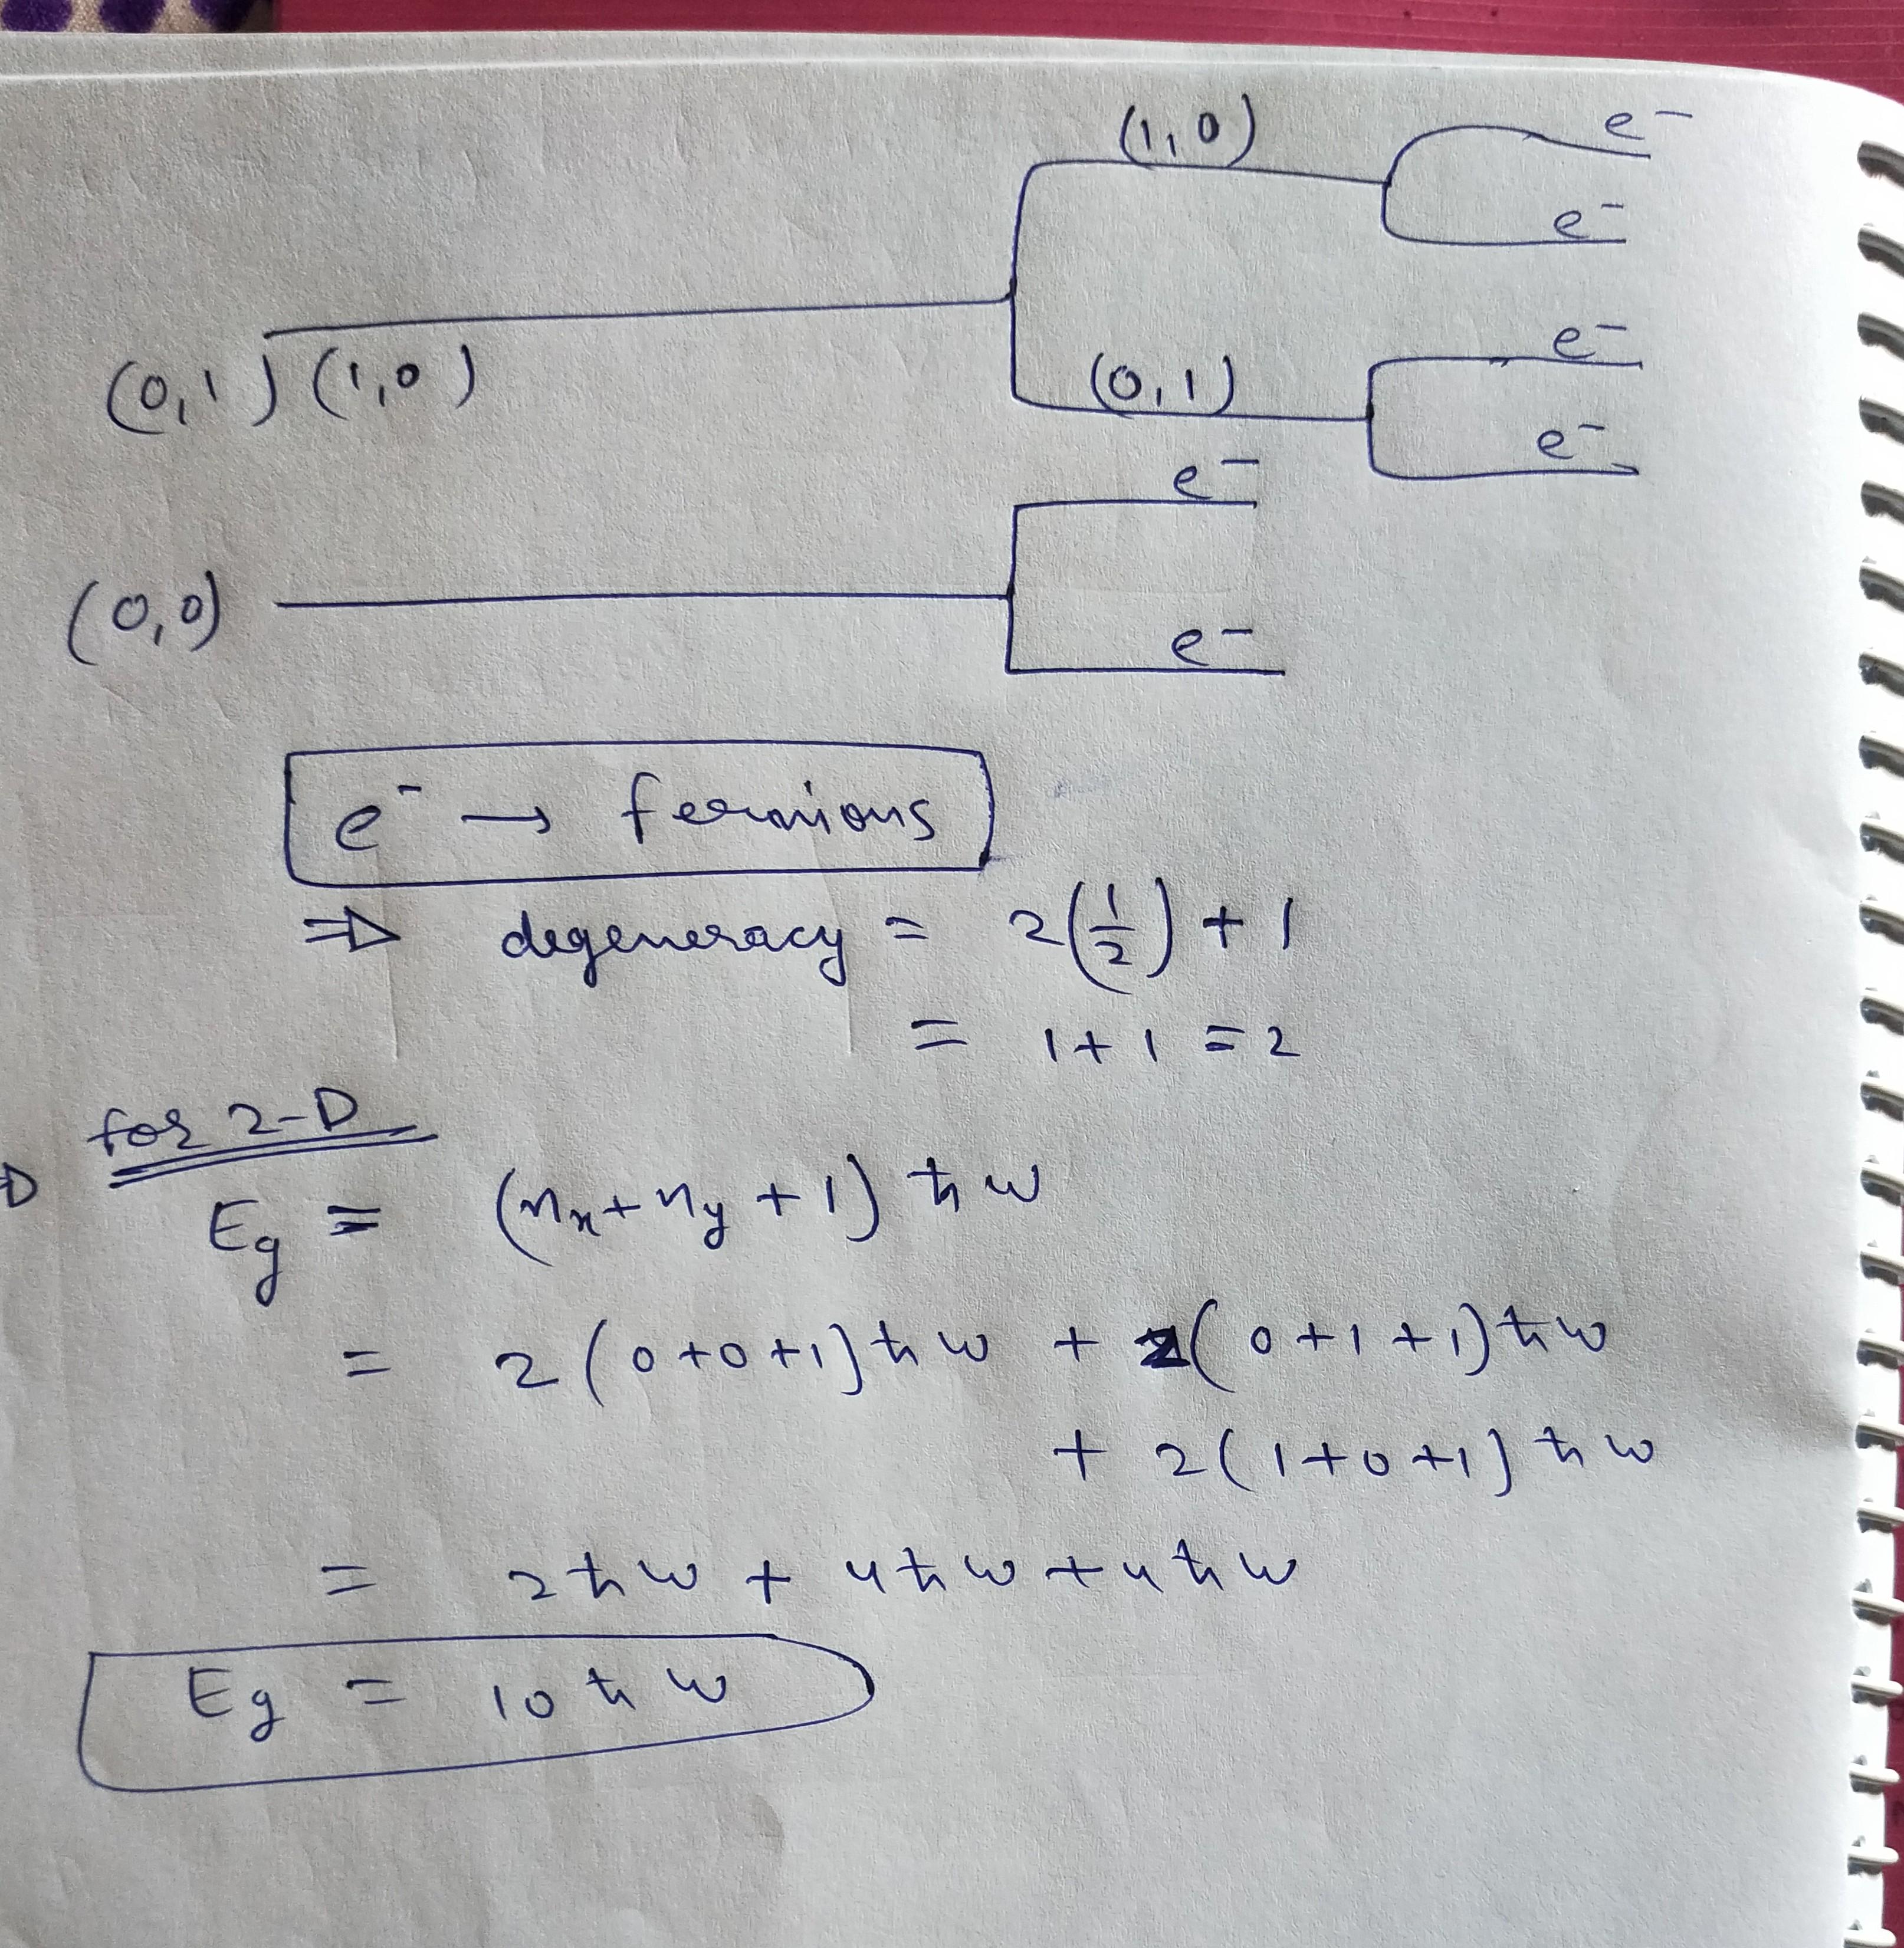 (1,0)
e⁻
e⁻
(0,1) (1,0)
e⁻
(0,1)
e⁻
e⁻
(0,0)
e⁻
e⁻ → fermions
⇒ degeneracy = 2(1/2) + 1
= 1+1 = 2
for 2-D
⇒ Eg = (nx + ny + 1) ħω
= 2(0+0+1)ħω + 2(0+1+1)ħω
+ 2(1+0+1)ħω
= 2ħω + 4ħω + 4ħω
Eg = 10ħω